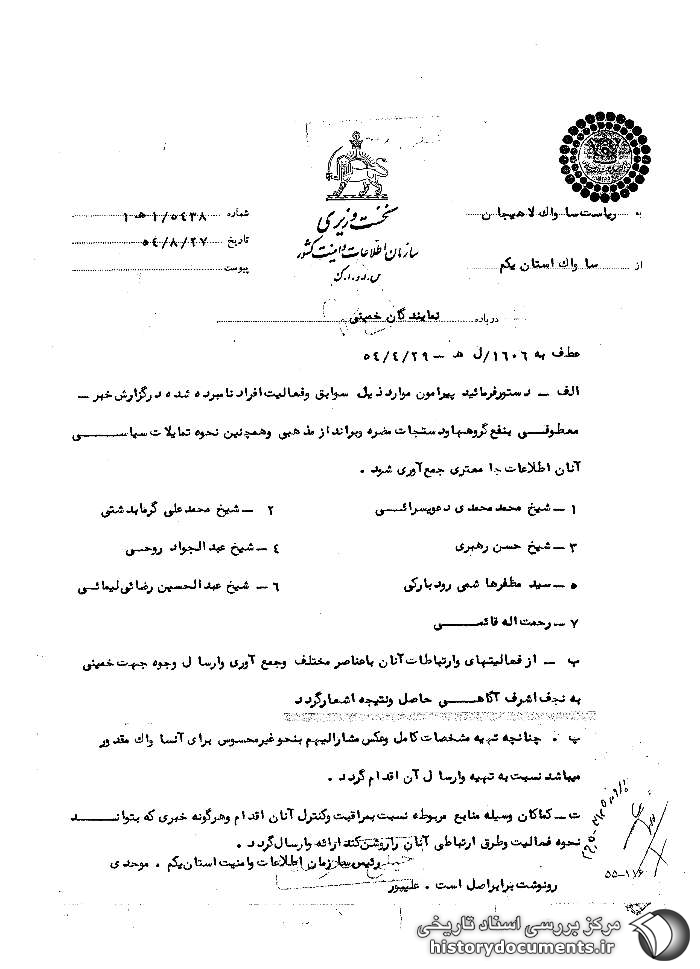 نخست وزیری
سازمان اطلاعات و امنیت کشور
س.ا.و.ا.ک
به ریاست ساواک لاهیجان
از ساواک استان یکم
شماره ۱/۵۴۳۸ هـ ۱
تاریخ ۵۴/۸/۲۷
پیوست
درباره نمایندگان خمینی
عطف به ۱۶۰۶/ل هـ – ۵۴/۴/۲۹
الف – دستور فرمائید پیرامون موارد ذیل سوابق و فعالیت افراد نامبرده شده در گزارش خبر –
معطوفی بنفع گروهها و دستجات مضره و برانداز مذهبی وهمچنین نحوه تمایلات سیاسی
آنان اطلاعات جامعتری جمع‌آوری شود .
۱ – شیخ محمد محمدی دعویسرائی
۲ – شیخ محمدعلی گرمابدشتی
۳ – شیخ حسن رهبری
۴ – شیخ عبدالجواد روحی
۵ – سید مظفر هاشمی رودبارکی
۶ – شیخ عبدالحسین رضائی لیمائی
۷ – رحمت اله قائمی
ب – از فعالیتهای وارتباطات آنان باعناصر مختلف وجمع آوری وارسال وجوه جهت خمینی
به نجف اشرف آگاهی حاصل ونتیجه اشعارگردد
پ . چنانچه تهیه مشخصات کامل وعکس مشارالیهم بنحوغیرمحسوس برای آنساواک مقدور
میباشد نسبت به تهیه وارسال آن اقدام گردد .
ت – کماکان وسیله منابع مربوطه نسبت بمراقبت وکنترل آنان اقدام وهرگونه خبری که بتواند
نحوه فعالیت وطرق ارتباطی آنان راروشن کند ارائه وارسال گردد .
رئیس سازمان اطلاعات وامنیت استان یکم . موحدی
رونوشت برابر اصل است . علیپور
۵۵–۱۱۶
مرکز بررسی اسناد تاریخی
historydocuments.ir